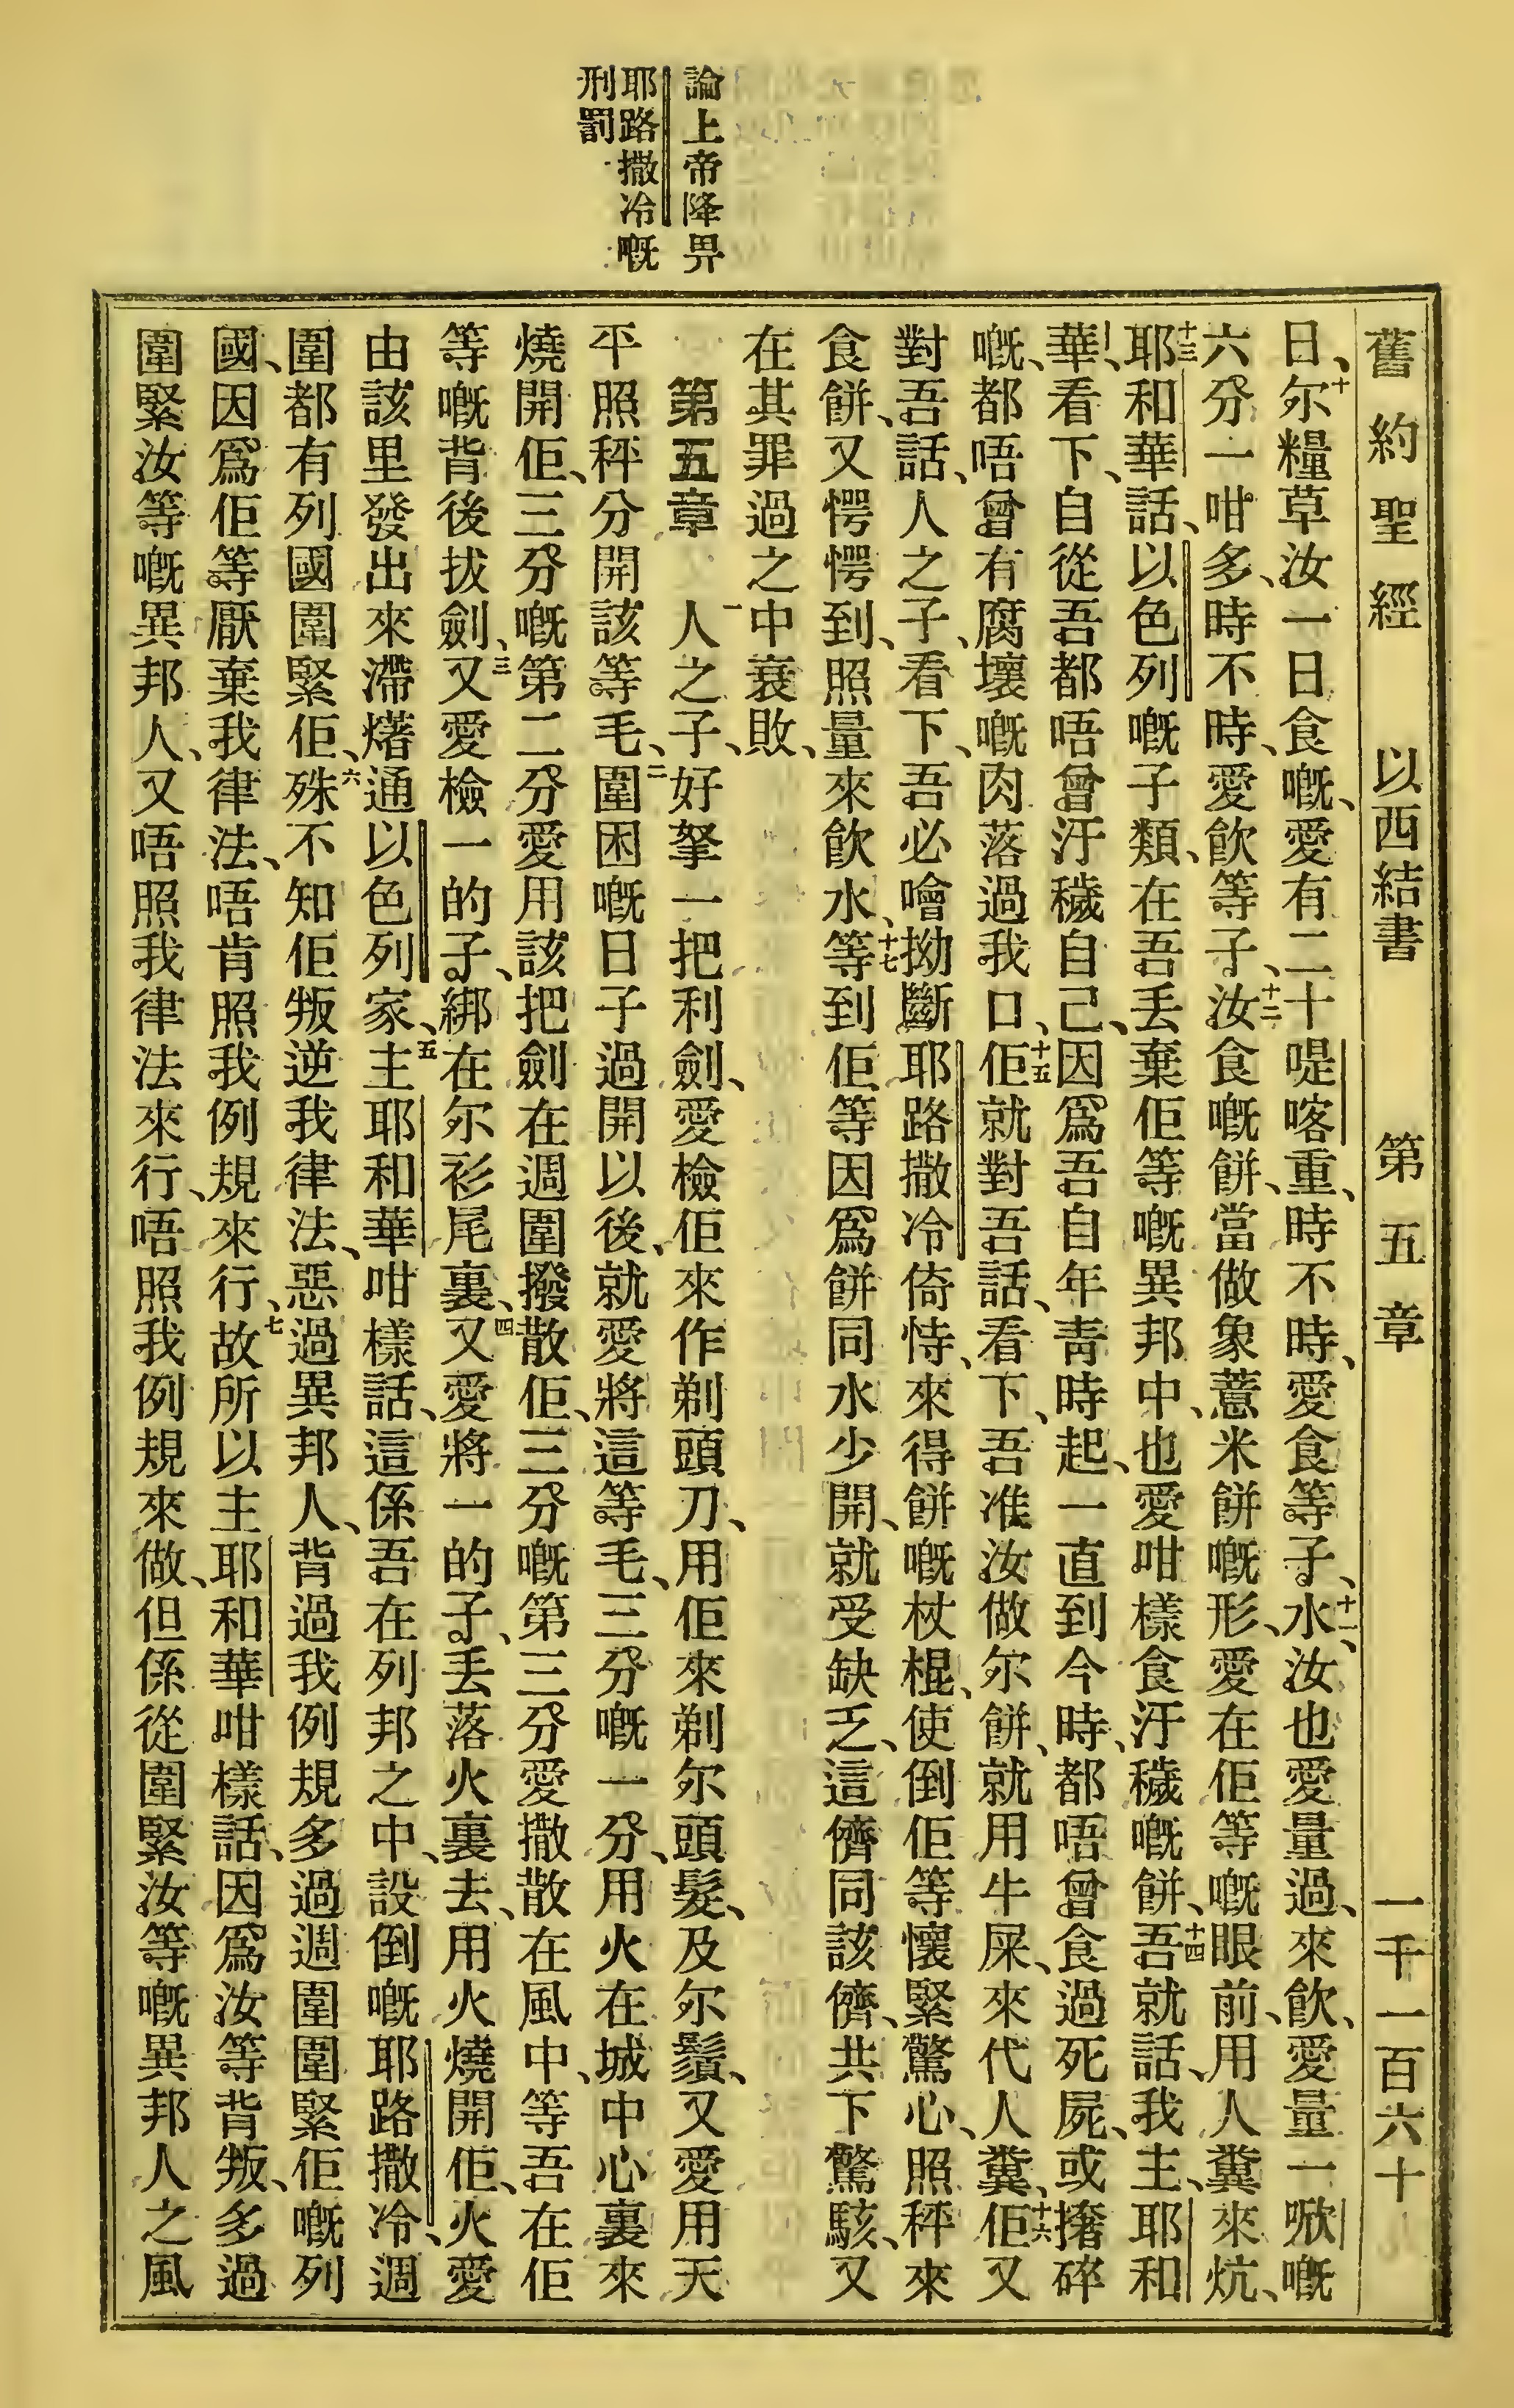 論上帝降畀
耶路撒冷嘅
刑罰
舊約聖經 以西結書 第五章 一千一百六十
日、十尔糧草汝一日食嘅、愛有二十㖷喀重、時不時、愛食等子、十一水、汝也愛量過、來飲、愛量一㗵嘅
六分一咁多、時不時、愛飲等子、十二汝食嘅餅、當做象薏米餅嘅形、愛在佢等嘅眼前、用人糞來炕、
十三耶和華話、以色列嘅子類、在吾丢棄佢等嘅異邦中、也愛咁樣食汙穢嘅餅、十四吾就話、我主、耶和
華、看下、自從吾都唔曾汙穢自己、因爲吾自年靑時起、一直到今時、都唔曾食過死屍、或撦碎
嘅、都唔曾有腐壞嘅肉落過我口、十五佢就對吾話、看下、吾准汝做尔餅、就用牛屎、來代人糞、十六佢又
對吾話、人之子、看下、吾必噲拗斷耶路撒冷倚恃、來得餅嘅杖棍、使倒佢等懷緊驚心、照秤來
食餅、又愕愕到、照量來飲水、十七等到佢等因爲餅同水少開、就受缺乏、這儕同該儕、共下驚駭、又
在其罪過之中衰敗、
第五章 一人之子、好拏一把利劍、愛檢佢來作剃頭刀、用佢來剃尔頭髮、及尔鬚、又愛用天
平照秤分開該等毛、二圍困嘅日子過開以後、就愛將這等毛、三分嘅一分、用火在城中心裏來
燒開佢、三分嘅第二分愛用該把劍在週圍撥散佢、三分嘅第三分愛撒散在風中、等吾在佢
等嘅背後拔劍、三又愛檢一的子、綁在尔衫尾裏、四又愛將一的子、丢落火裏去、用火燒開佢、火愛
由該里發出來滯㷮通以色列家、五主耶和華咁樣話、這係吾在列邦之中、設倒嘅耶路撒冷、週
圍都有列國圍緊佢、六殊不知佢叛逆我律法、惡過異邦人、背過我例規多過週圍圍緊佢嘅列
國、因爲佢等厭棄我律法、唔肯照我例規來行、七故所以主耶和華咁樣話、因爲汝等背叛、多過
圍緊汝等嘅異邦人、又唔照我律法來行、唔照我例規來做、但係從圍緊汝等嘅異邦人之風